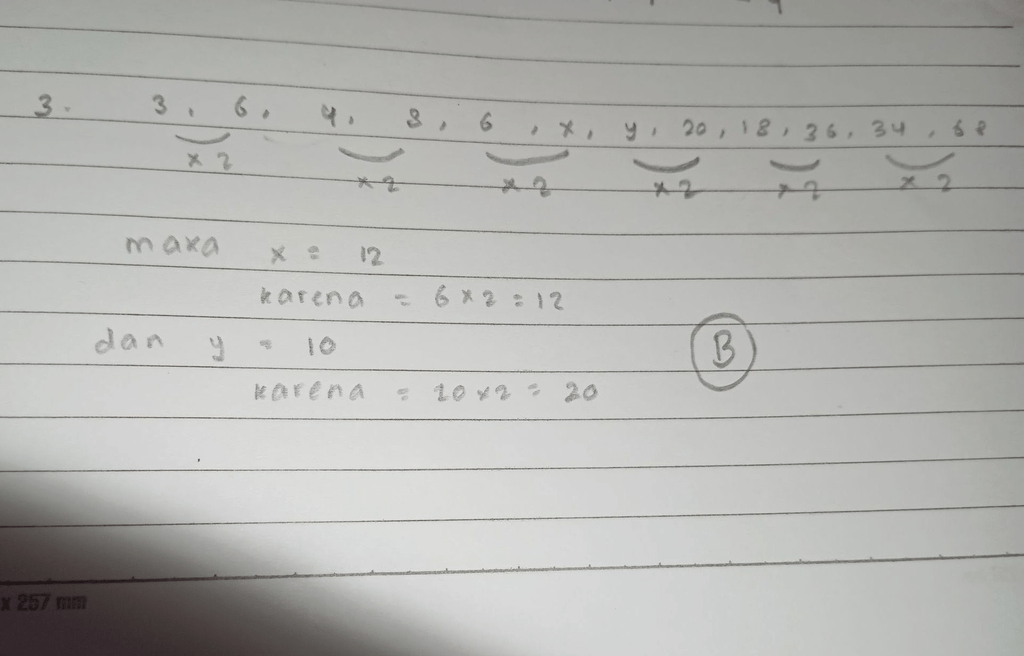 3. 3, 6, 4, 8, 6, x, y, 20, 18, 36, 34, 68
x2 x2 x2 x2 x2 x2
maka x = 12
karena = 6 x 2 = 12
dan y = 10
B
karena = 10 x 2 = 20
x 257 mm